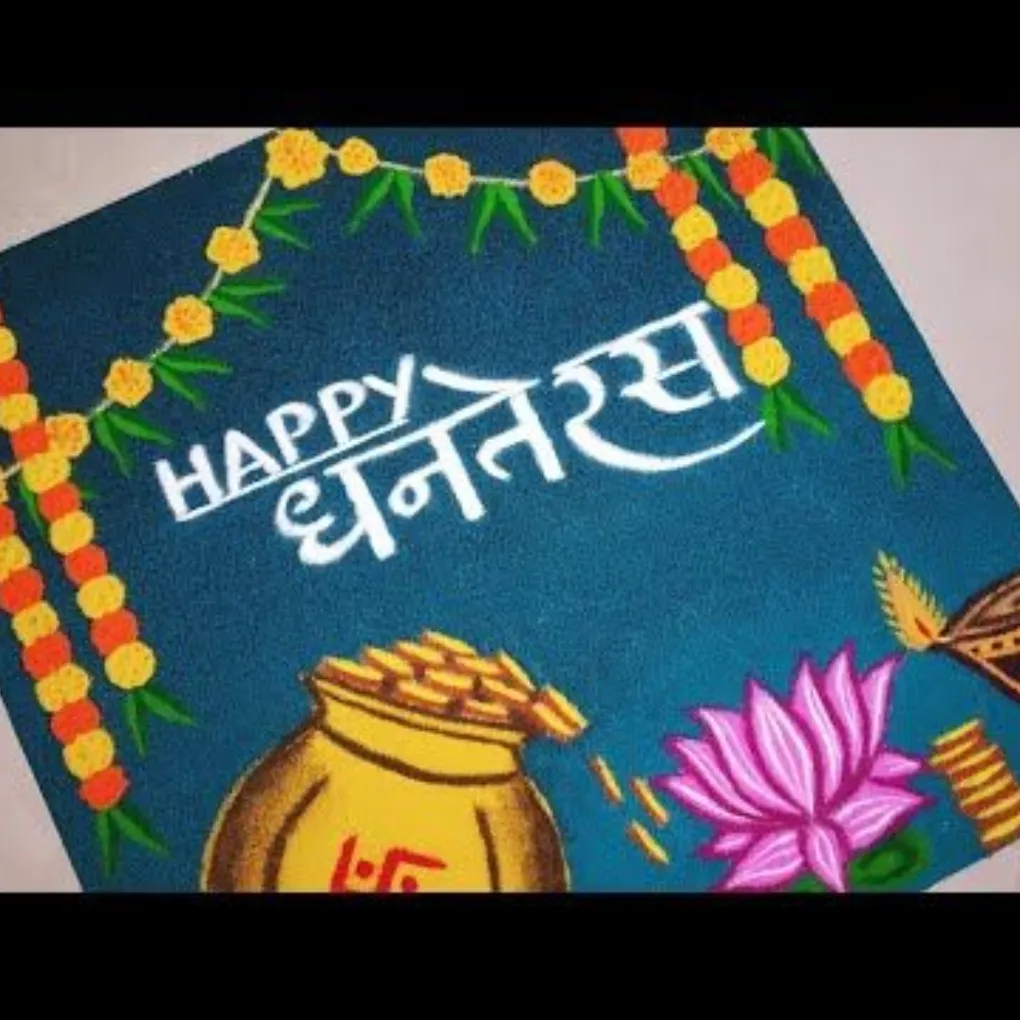 HAPPY
धनतेरस